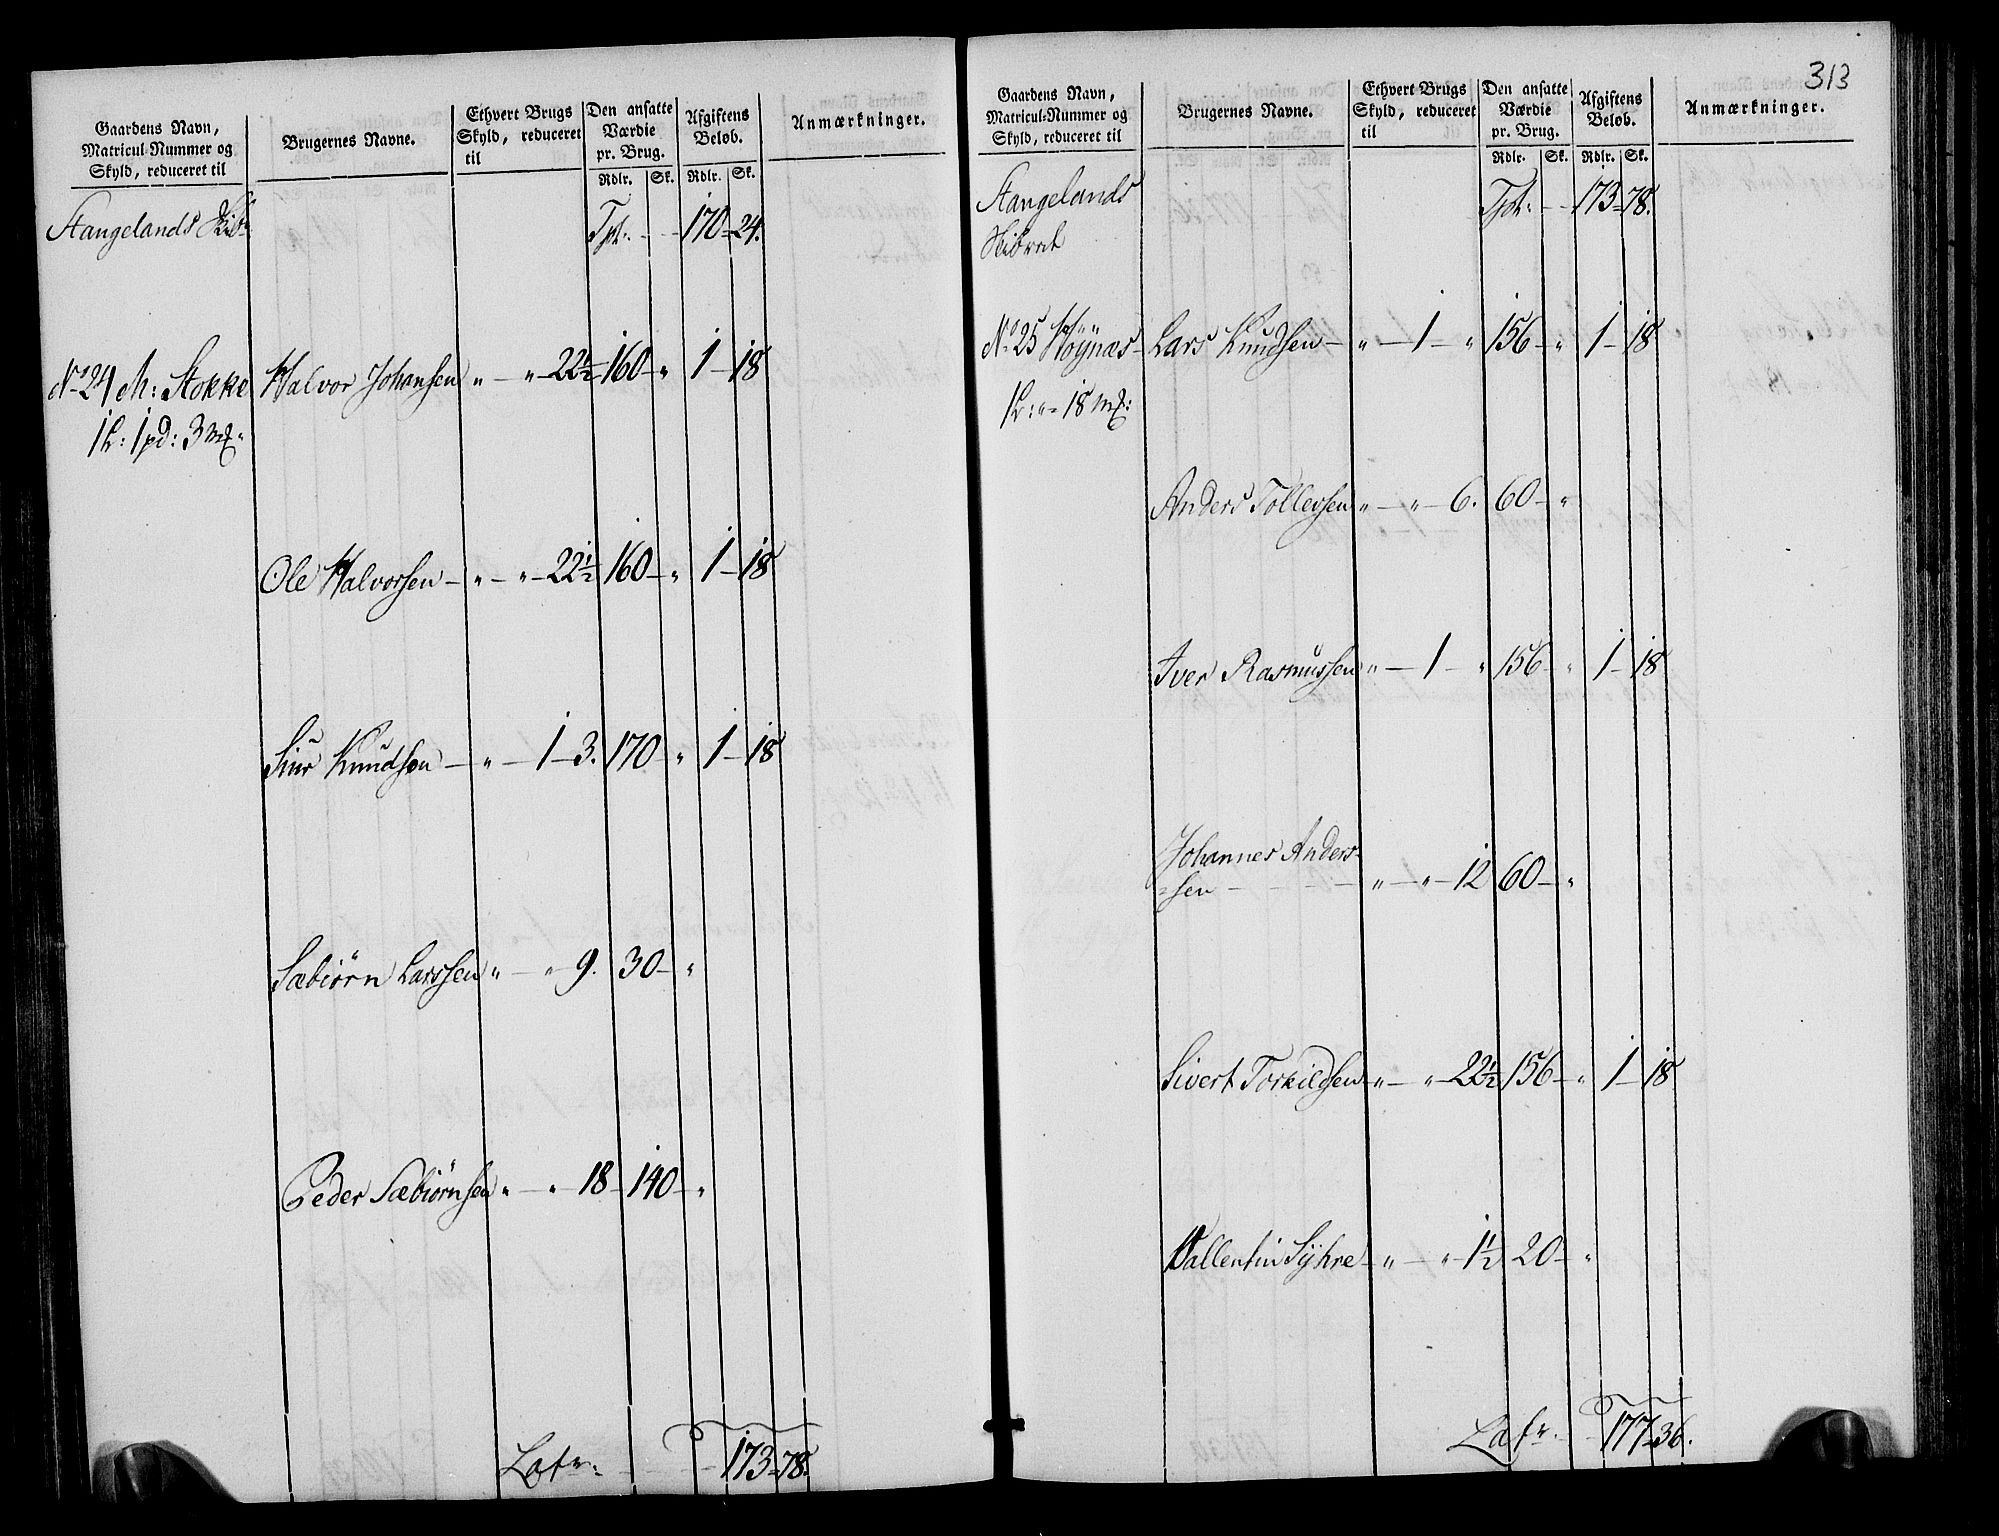 Gaardens Navn,
Matricul-Nummer og
Skyld, reduceret til
Brugernes Navne.
Ethvert Brugs
Skyld, reduceret
til
Den ansatte
Værdie
pr. Brug.
Rdlr. Sk.
Afgiftens
Beløb.
Rdlr. Sk.
Anmærkninger.
Stangelands Skib:
Tpt: - - 170 - 24.
No 24 M: Stokke Halvor Johansen " - " - 22½ - 160 - " 1 - 18
1 L: 1 pd: 3 mk
Ole Halvorsen - " - " - 22½ 160 - " 1 - 18
Siur Knudsen - " - 1 - 3. 170 " 1 - 18
Sæbiørn Larssen " - " - 9. 30 - "
Peder Sæbiørnsen " - " 18 - 140 - "
Latr: - - - 173 - 78.
313
Gaardens Navn,
Matricul-Nummer og
Skyld, reduceret til
Brugernes Navne.
Ethvert Brugs
Skyld, reduceret
til
Den ansatte
Værdie
pr. Brug.
Rdlr. Sk.
Afgiftens
Beløb.
Rdlr. Sk.
Anmærkninger.
Stangelands
Skibret
Tpt: - - 173 - 78.
No 25 Høynæs - Lars Knudsen - " - 1 - " 156 - " 1 - 18
1 L: " - 18 mk:
Anders Tollevsen " - " - 6. 60 - "
Iver Rasmussen " - 1 - " 156 - " 1 - 18
Johannes Anders-
-sen - - - - " - " - 12 60 - "
Sivert Torkildsen - " - " - 22½ 156 - " 1 - 18
Vallentin Syhre - " - " - 1½ 20 - "
Latr. - - 177 - 36.